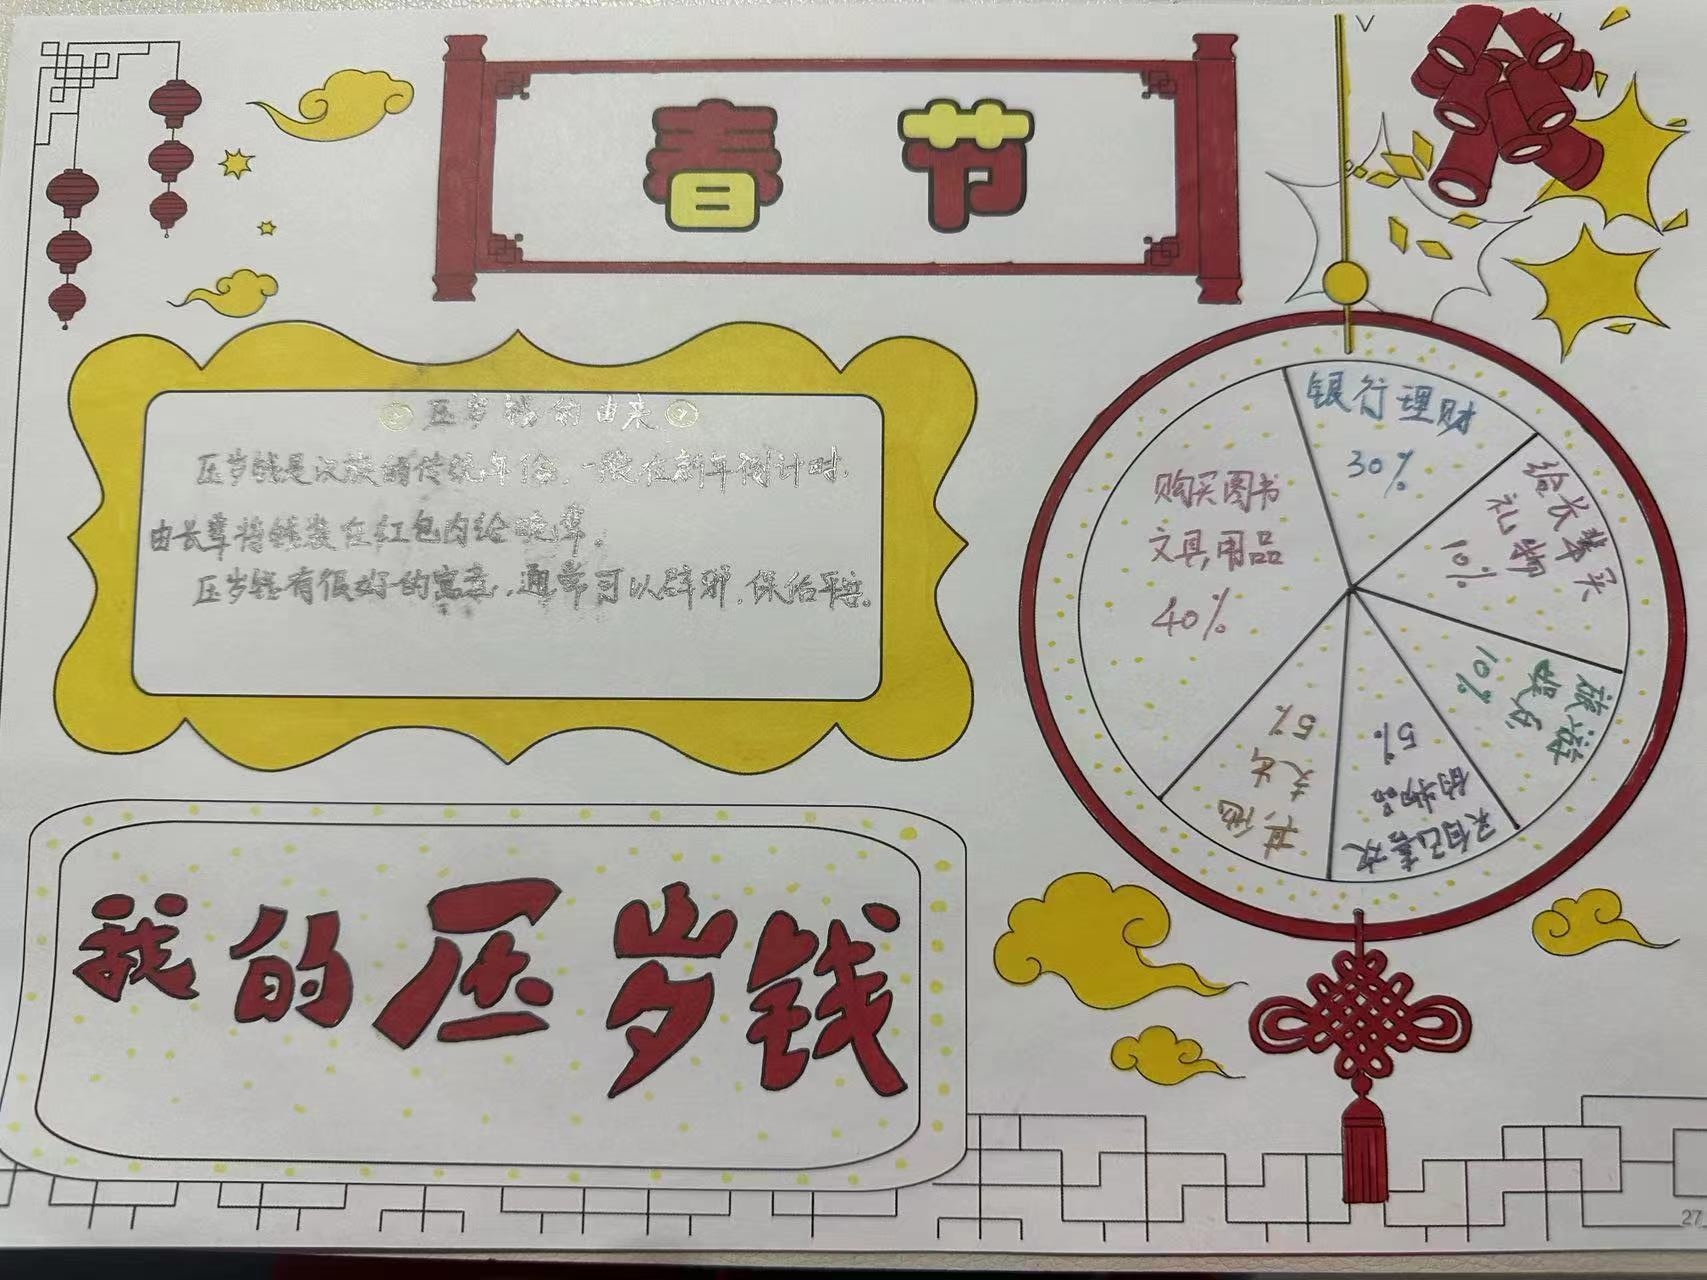 春节
压岁钱的由来
压岁钱是汉族的传统年俗,一般在新年倒计时,
由长辈将钱装在红包内给晚辈。
压岁钱有很好的寓意,通常可以辟邪,保佑平安。
我的压岁钱
银行理财
30%
给长辈买
礼物
10%
旅游
10%
买自己喜欢
的物品
5%
其他
支出
5%
购买图书
文具用品
40%
27